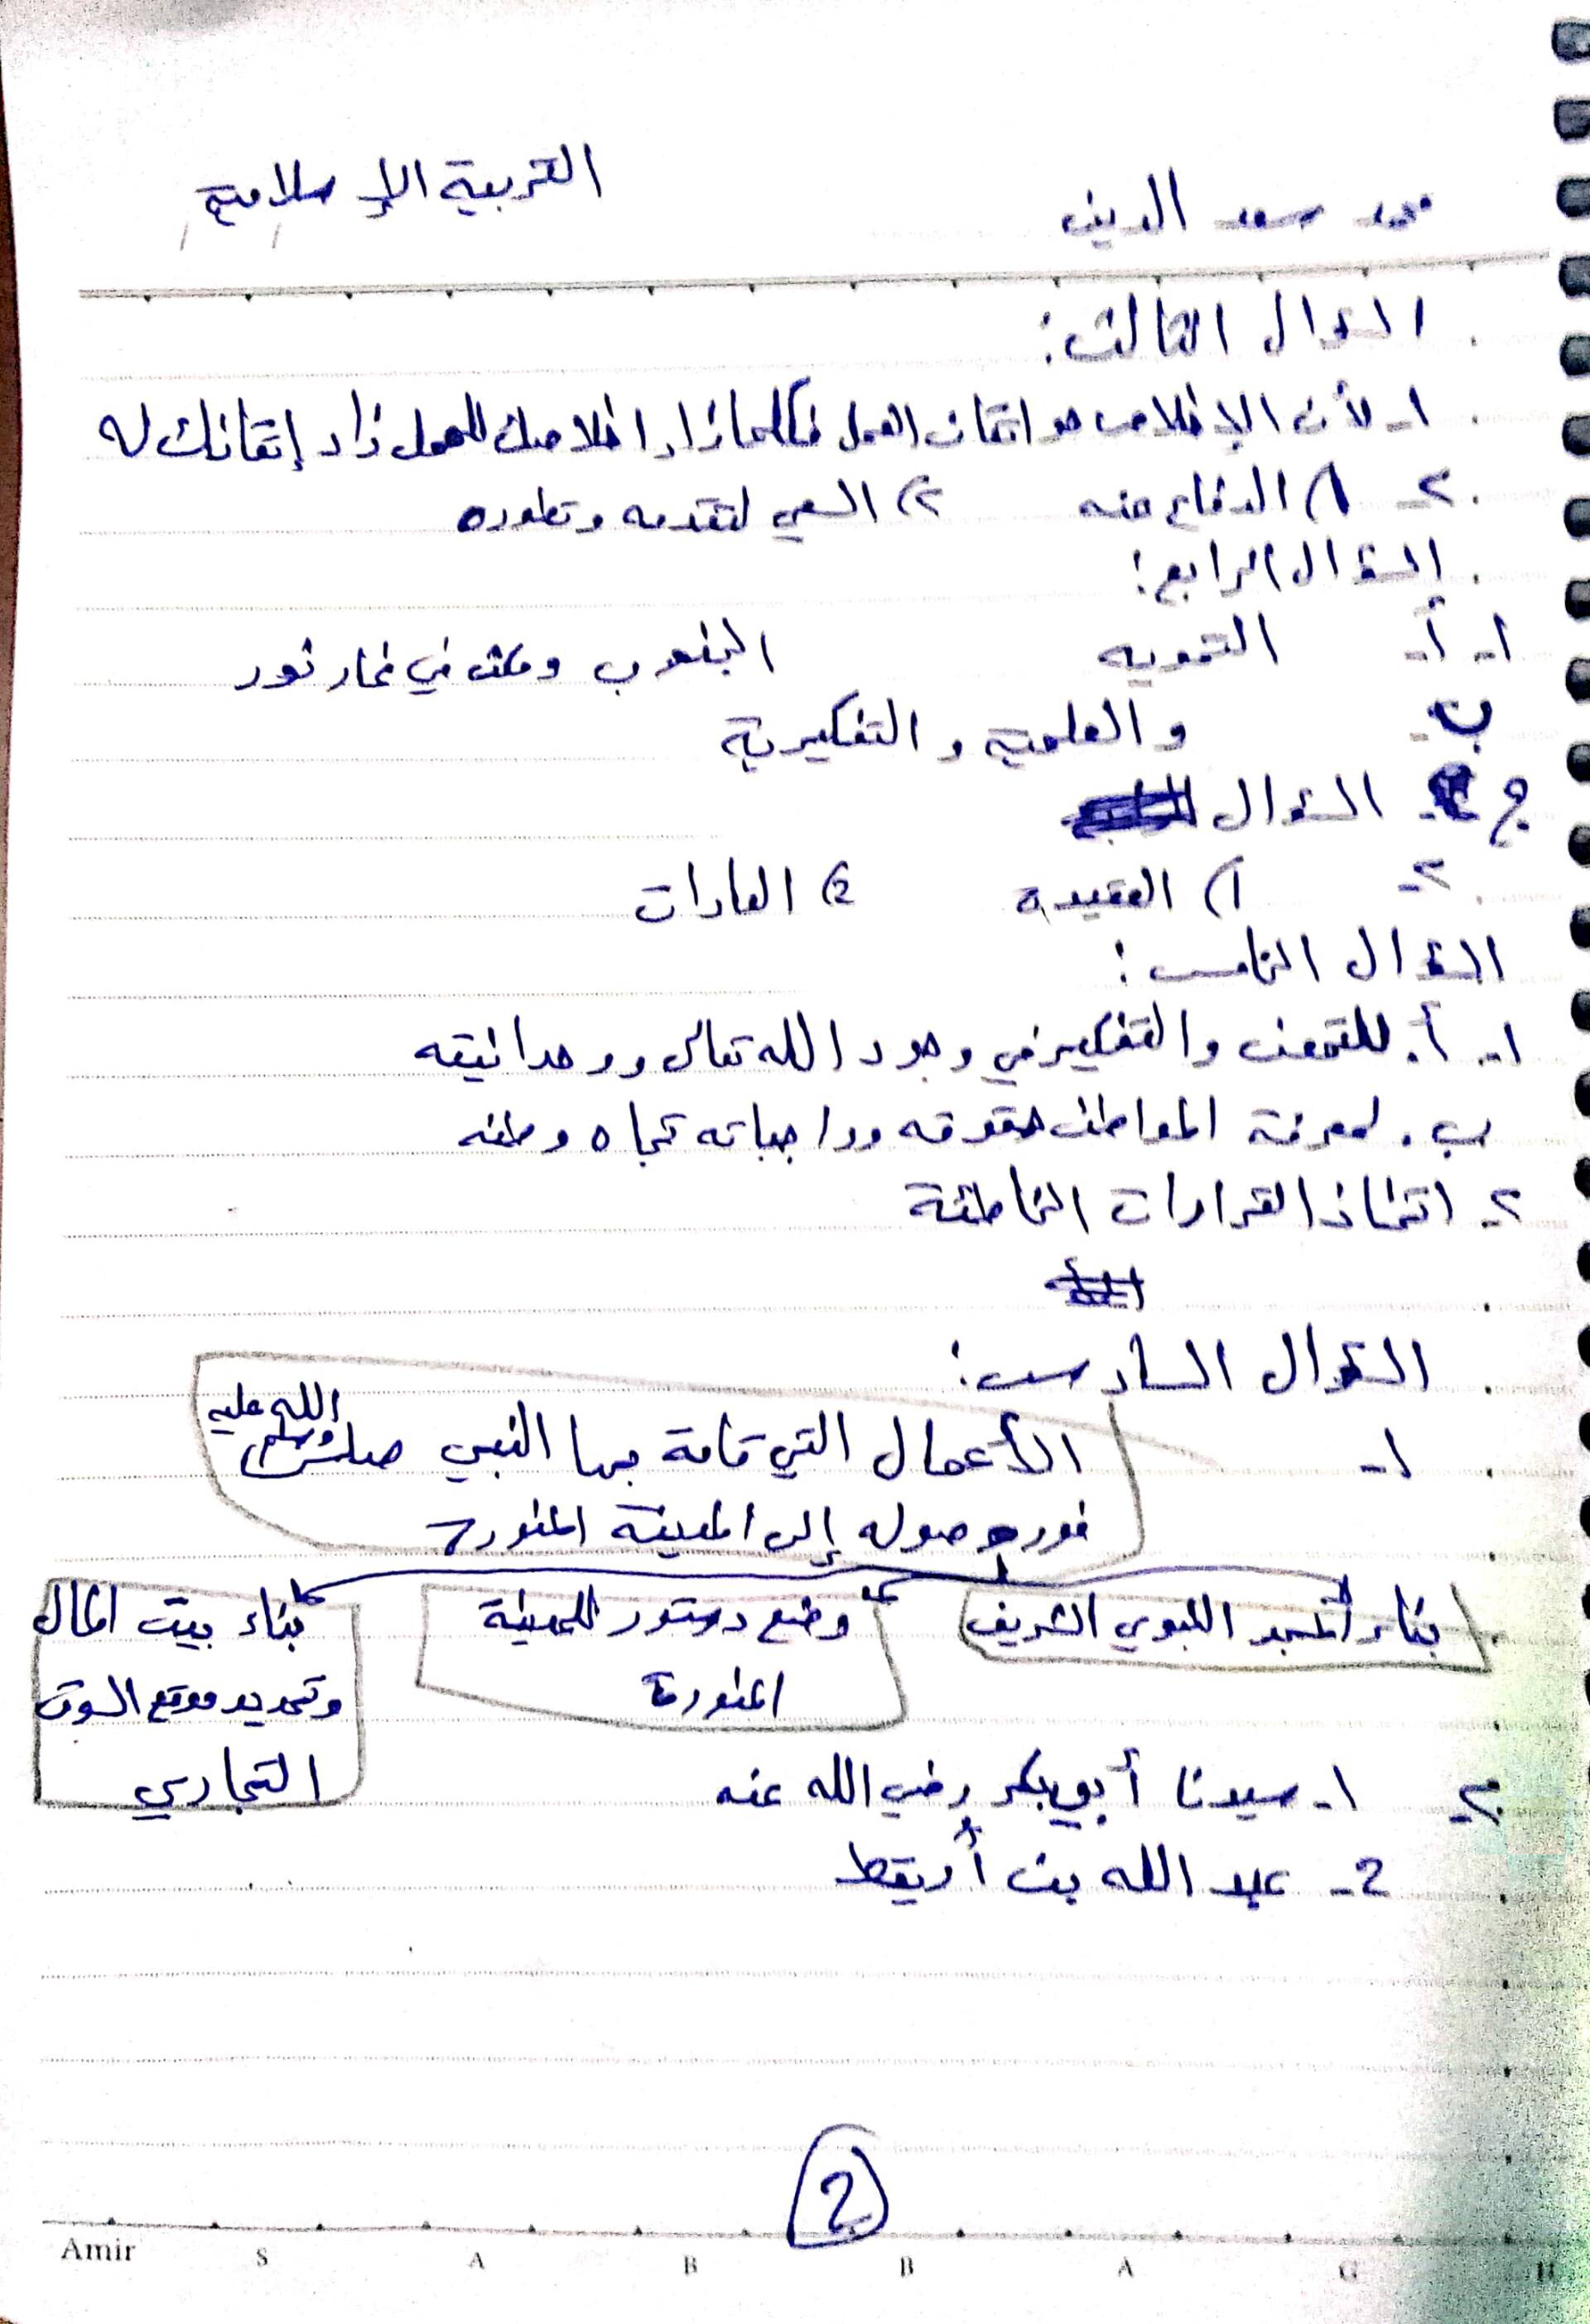 محمد سعد الدين
التربية الإسلامية
السؤال الثالث:
١- لأن الإخلاص هو اتقان العمل فكلما زاد اخلاصك للعمل زاد إتقانك له
٢- ١) الدفاع عنه ٢) السعي لتقدمه وتطوره
السؤال الرابع:
١- أ- التمويه الجنوب ومكث في غار ثور
ب- والعلمية والتفكيرية
ج- السؤال
٢- ١) العقيدة 2) العادات
السؤال الخامس:
١- أ. للتمعن والتفكير في وجود الله تعالى ووحدانيته
ب. لمعرفة المواطن حقوقه وواجباته تجاه وطنه
٢- اتخاذ القرارات الخاطئة
السؤال السادس:
١- الأعمال التي قامة بها النبي صلى الله عليه وسلم
فور وصوله إلى المدينة المنورة
بناء المسجد النبوي الشريف
وضع دستور للمدينة
المنورة
بناء بيت المال
وتحديد موقع السوق
التجاري
٢- ١- سيدنا أبو بكر رضي الله عنه
2- عبد الله بن أريقط
2
Amir S A B B A G H